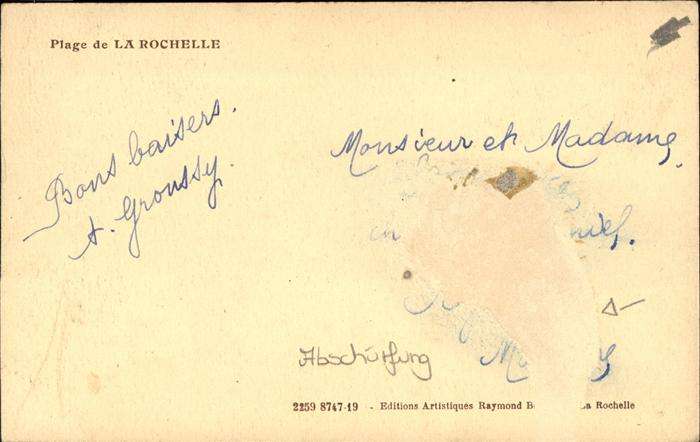 Plage de LA ROCHELLE
Bons baisers.
A. Groussy.
Monsieur et Madame
Abschürfung
2259 8747-19 - Editions Artistiques Raymond B La Rochelle